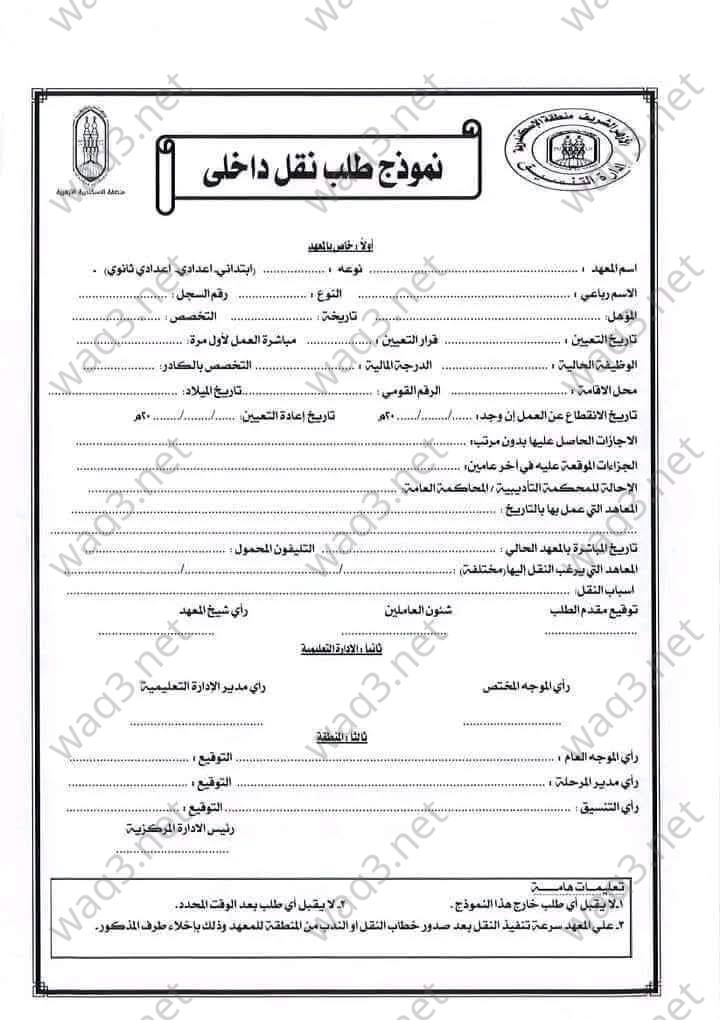 الأزهر الشريف منطقة الإسكندرية
إدارة التنسيق
منطقة الاسكندرية الأزهرية
نموذج طلب نقل داخلى
أولاً : خاص بالمعهد
اسم المعهد : .................... نوعه : .................... (ابتدائي. اعدادي. اعدادي ثانوي) .
الاسم رباعي : .................... النوع : .................... رقم السجل: ....................
المؤهل: .................... تاريخة : .................... التخصص: ....................
تاريخ التعيين : .................... قرار التعيين : .................... مباشرة العمل لأول مرة: ....................
الوظيفة الحالية : .................... الدرجة المالية : .................... التخصص بالكادر: ....................
محل الاقامة : .................... الرقم القومي : .................... تاريخ الميلاد: ....................
تاريخ الانقطاع عن العمل إن وجد: ....../....../......٢٠م تاريخ إعادة التعيين: ....../....../......٢٠م
الاجازات الحاصل عليها بدون مرتب: ....................
الجزاءات الموقعة عليه في أخر عامين: ....................
الإحالة للمحكمة التأديبية / المحاكمة العامة: ....................
المعاهد التي عمل بها بالتاريخ : ....................
....................
تاريخ المباشرة بالمعهد الحالي : .................... التليفون المحمول : ....................
المعاهد التي يرغب النقل إليها(مختلفة) : ..................../..................../....................
اسباب النقل: ....................
توقيع مقدم الطلب شئون العاملين رأي شيخ المعهد
.................... .................... ....................
ثانياً : الإدارة التعليمية
رأي الموجه المختص رأي مدير الإدارة التعليمية
.................... ....................
ثالثاً : المنطقة
رأي الموجه العام : .................... التوقيع : ....................
رأي مدير المرحلة : .................... التوقيع : ....................
رأي التنسيق : .................... التوقيع : ....................
رئيس الادارة المركزية
....................
تعليمـات هامـــة
١ـ لا يقبل أي طلب خارج هذا النموذج. ٢ـ لا يقبل أي طلب بعد الوقت المحدد.
٣ـ علي المعهد سرعة تنفيذ النقل بعد صدور خطاب النقل او الندب من المنطقة للمعهد وذلك بإخلاء طرف المذكور.
waq3.net